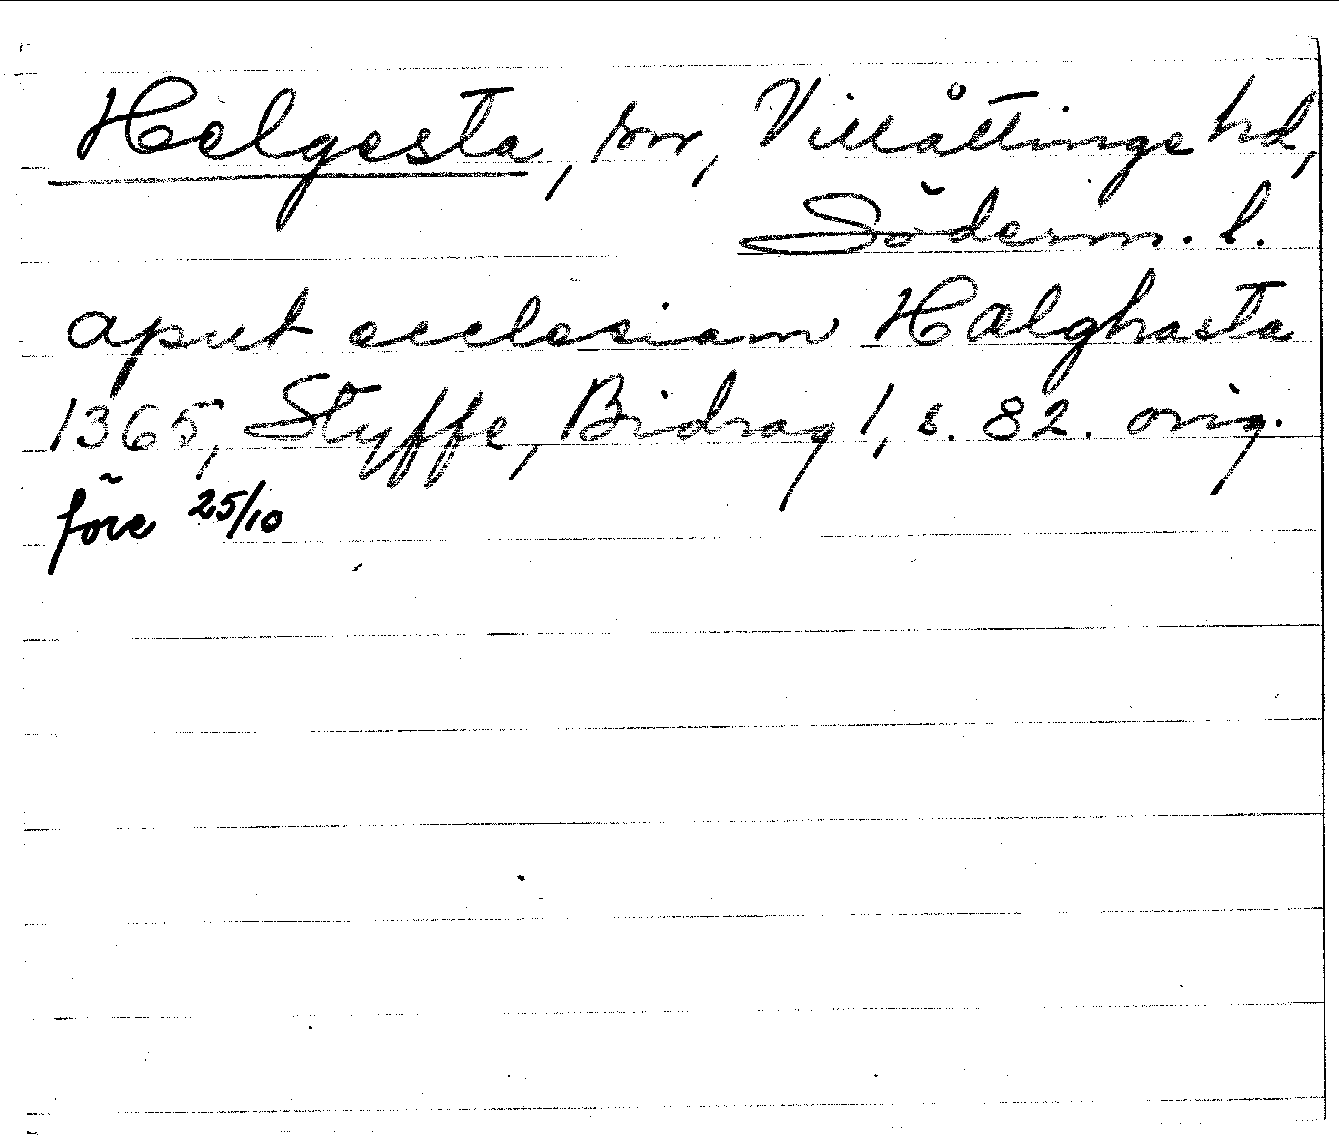 Helgesta, snr, Villåttinge hd,
Söderm. l.
aput ecclesiam Hælghasta
1365, Styffe, Bidrag 1, s. 82. orig.
före 25/10